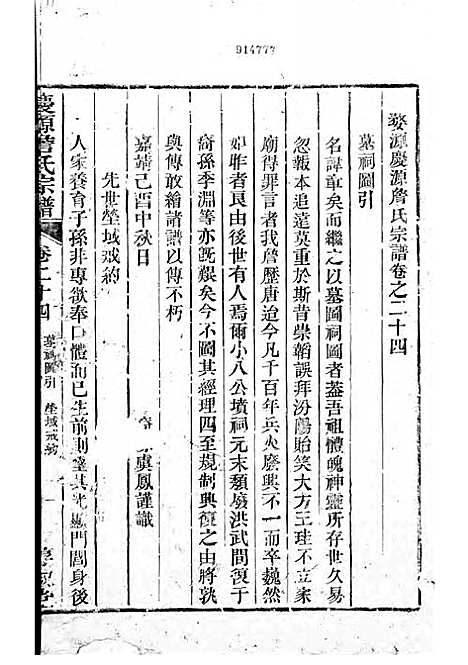 914777
婺源慶源詹氏宗譜卷之二十四
墓祠圖引
名諱章矣而繼之以墓圖祠圖者葢吾祖體魄神靈所存世久易
忽報本追遠莫重於斯昔崇韜誤拜汾陽貽笑大方王珪不立家
廟得罪言者我詹歷唐迨今凡千百年兵火廢興不一而卒巍然
如昨者良由後世有人焉爾小八公墳祠元末類廢洪武間復于
裔孫季淵等亦旣艱矣今不圖其經理四至規制興復之由將孰
與傳敢繪諸譜以傳不朽
嘉靖己酉中秋日
虞鳳謹識
先世塋域戒約
人家養育子孫非專欲奉口體而已生前則望其光顯門閭身後
慶源詹氏宗譜
卷二十四
墓祠圖引
塋域戒約
一